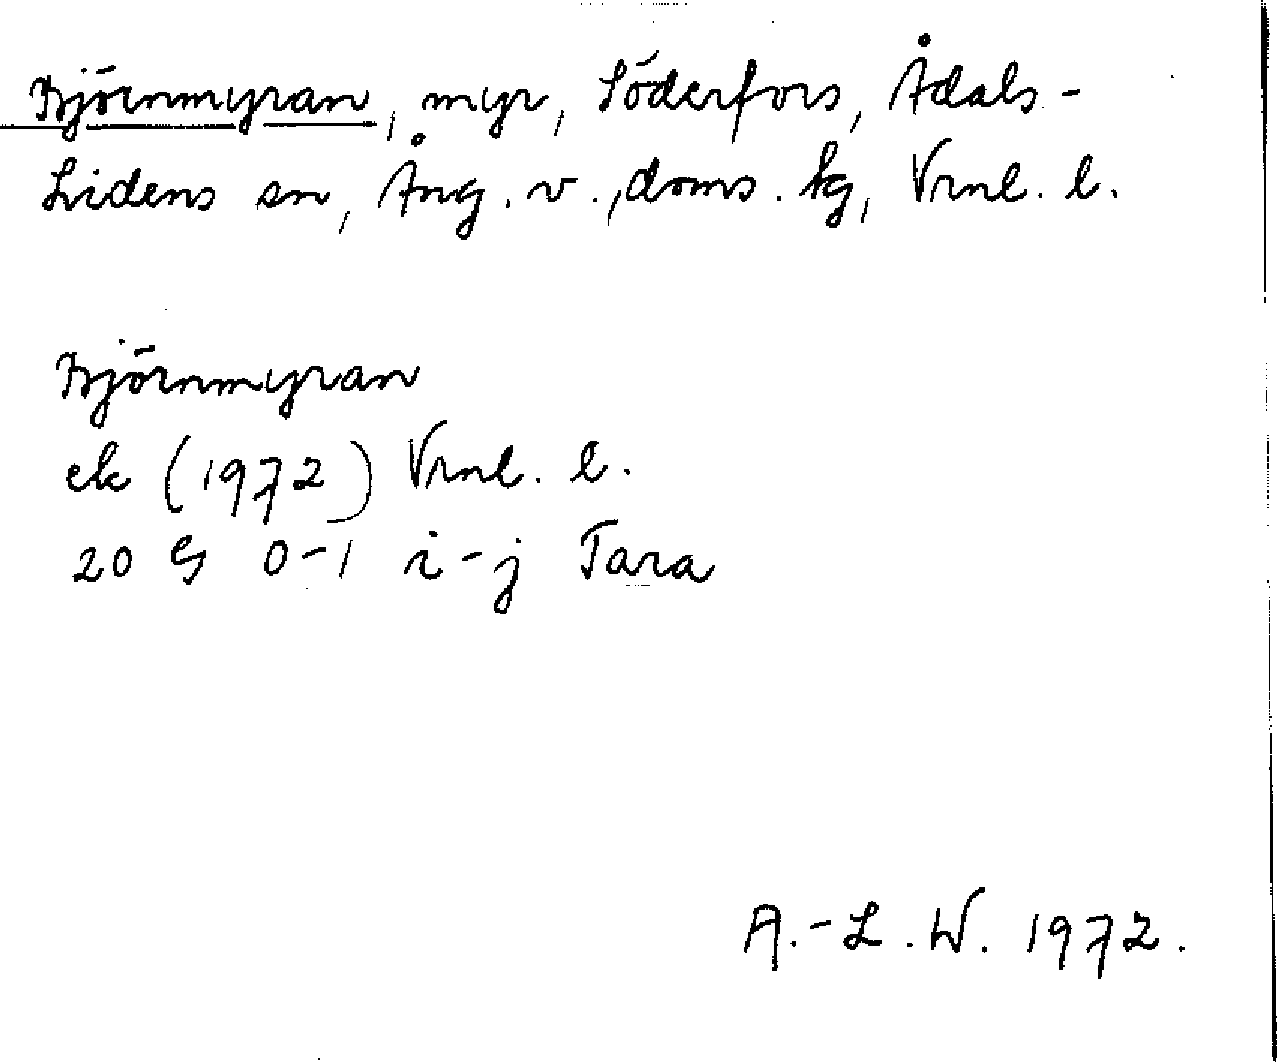 Björnmyran, myr, Söderfors, Ådals-
Lidens sn, Ång. v., doms. fg, Vrnl. l.
Björnmyran
ek (1972) Vrnl. l.
20 G 0-1 i-j Tara
A.-L. W. 1972.